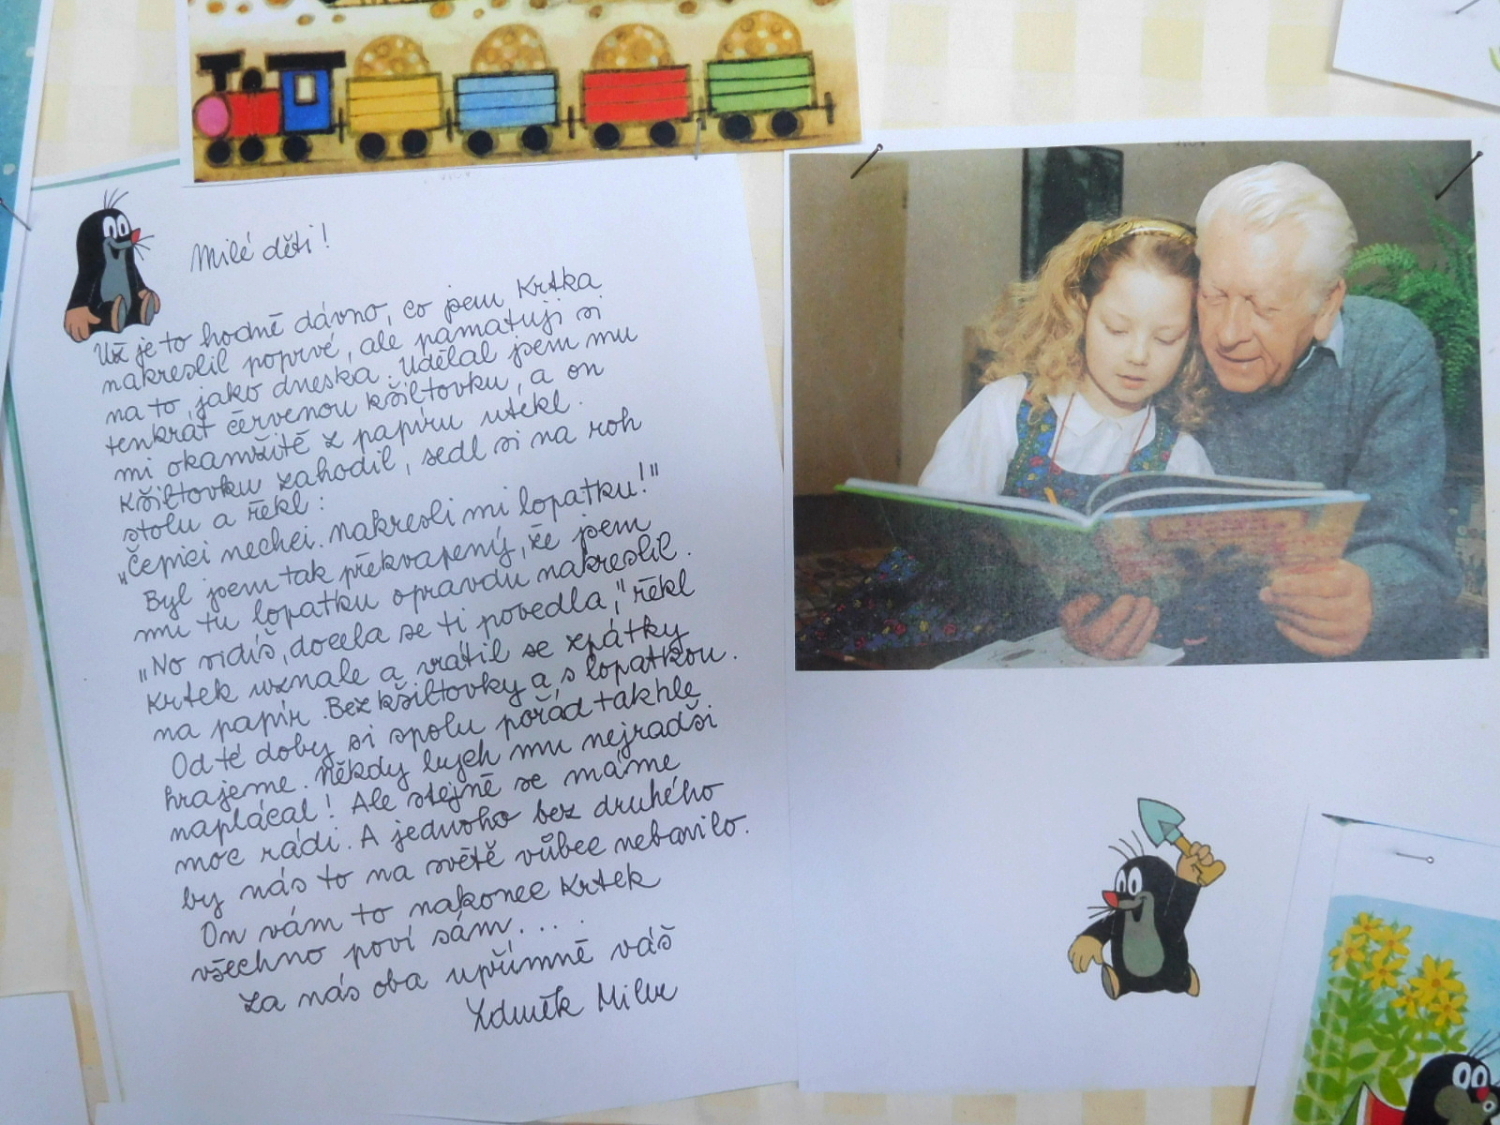 Milé děti!
Už je to hodně dávno, co jsem Krtka
nakreslil poprvé, ale pamatuji si
na to, jako dneska. Udělal jsem mu
tenkrát červenou kšiltovku, a on
mi okamžitě z papíru utekl.
Kšiltovku zahodil, sedl si na roh
stolu a řekl:
„Čepici nechci. Nakresli mi lopatku!"
Byl jsem tak překvapený, že jsem
mu tu lopatku opravdu nakreslil.
„No vidíš, docela se ti povedla," řekl
Krtek uznale a vrátil se zpátky
na papír. Bez kšiltovky a s lopatkou.
Od té doby si spolu pořád takhle
hrajeme. Někdy bych mu nejradši
naplácal! Ale stejně se máme
moc rádi. A jednoho bez druhého
by nás to na světě vůbec nebavilo.
On vám to nakonec Krtek
všechno poví sám...
Za nás oba upřímně váš
Zdeněk Miler